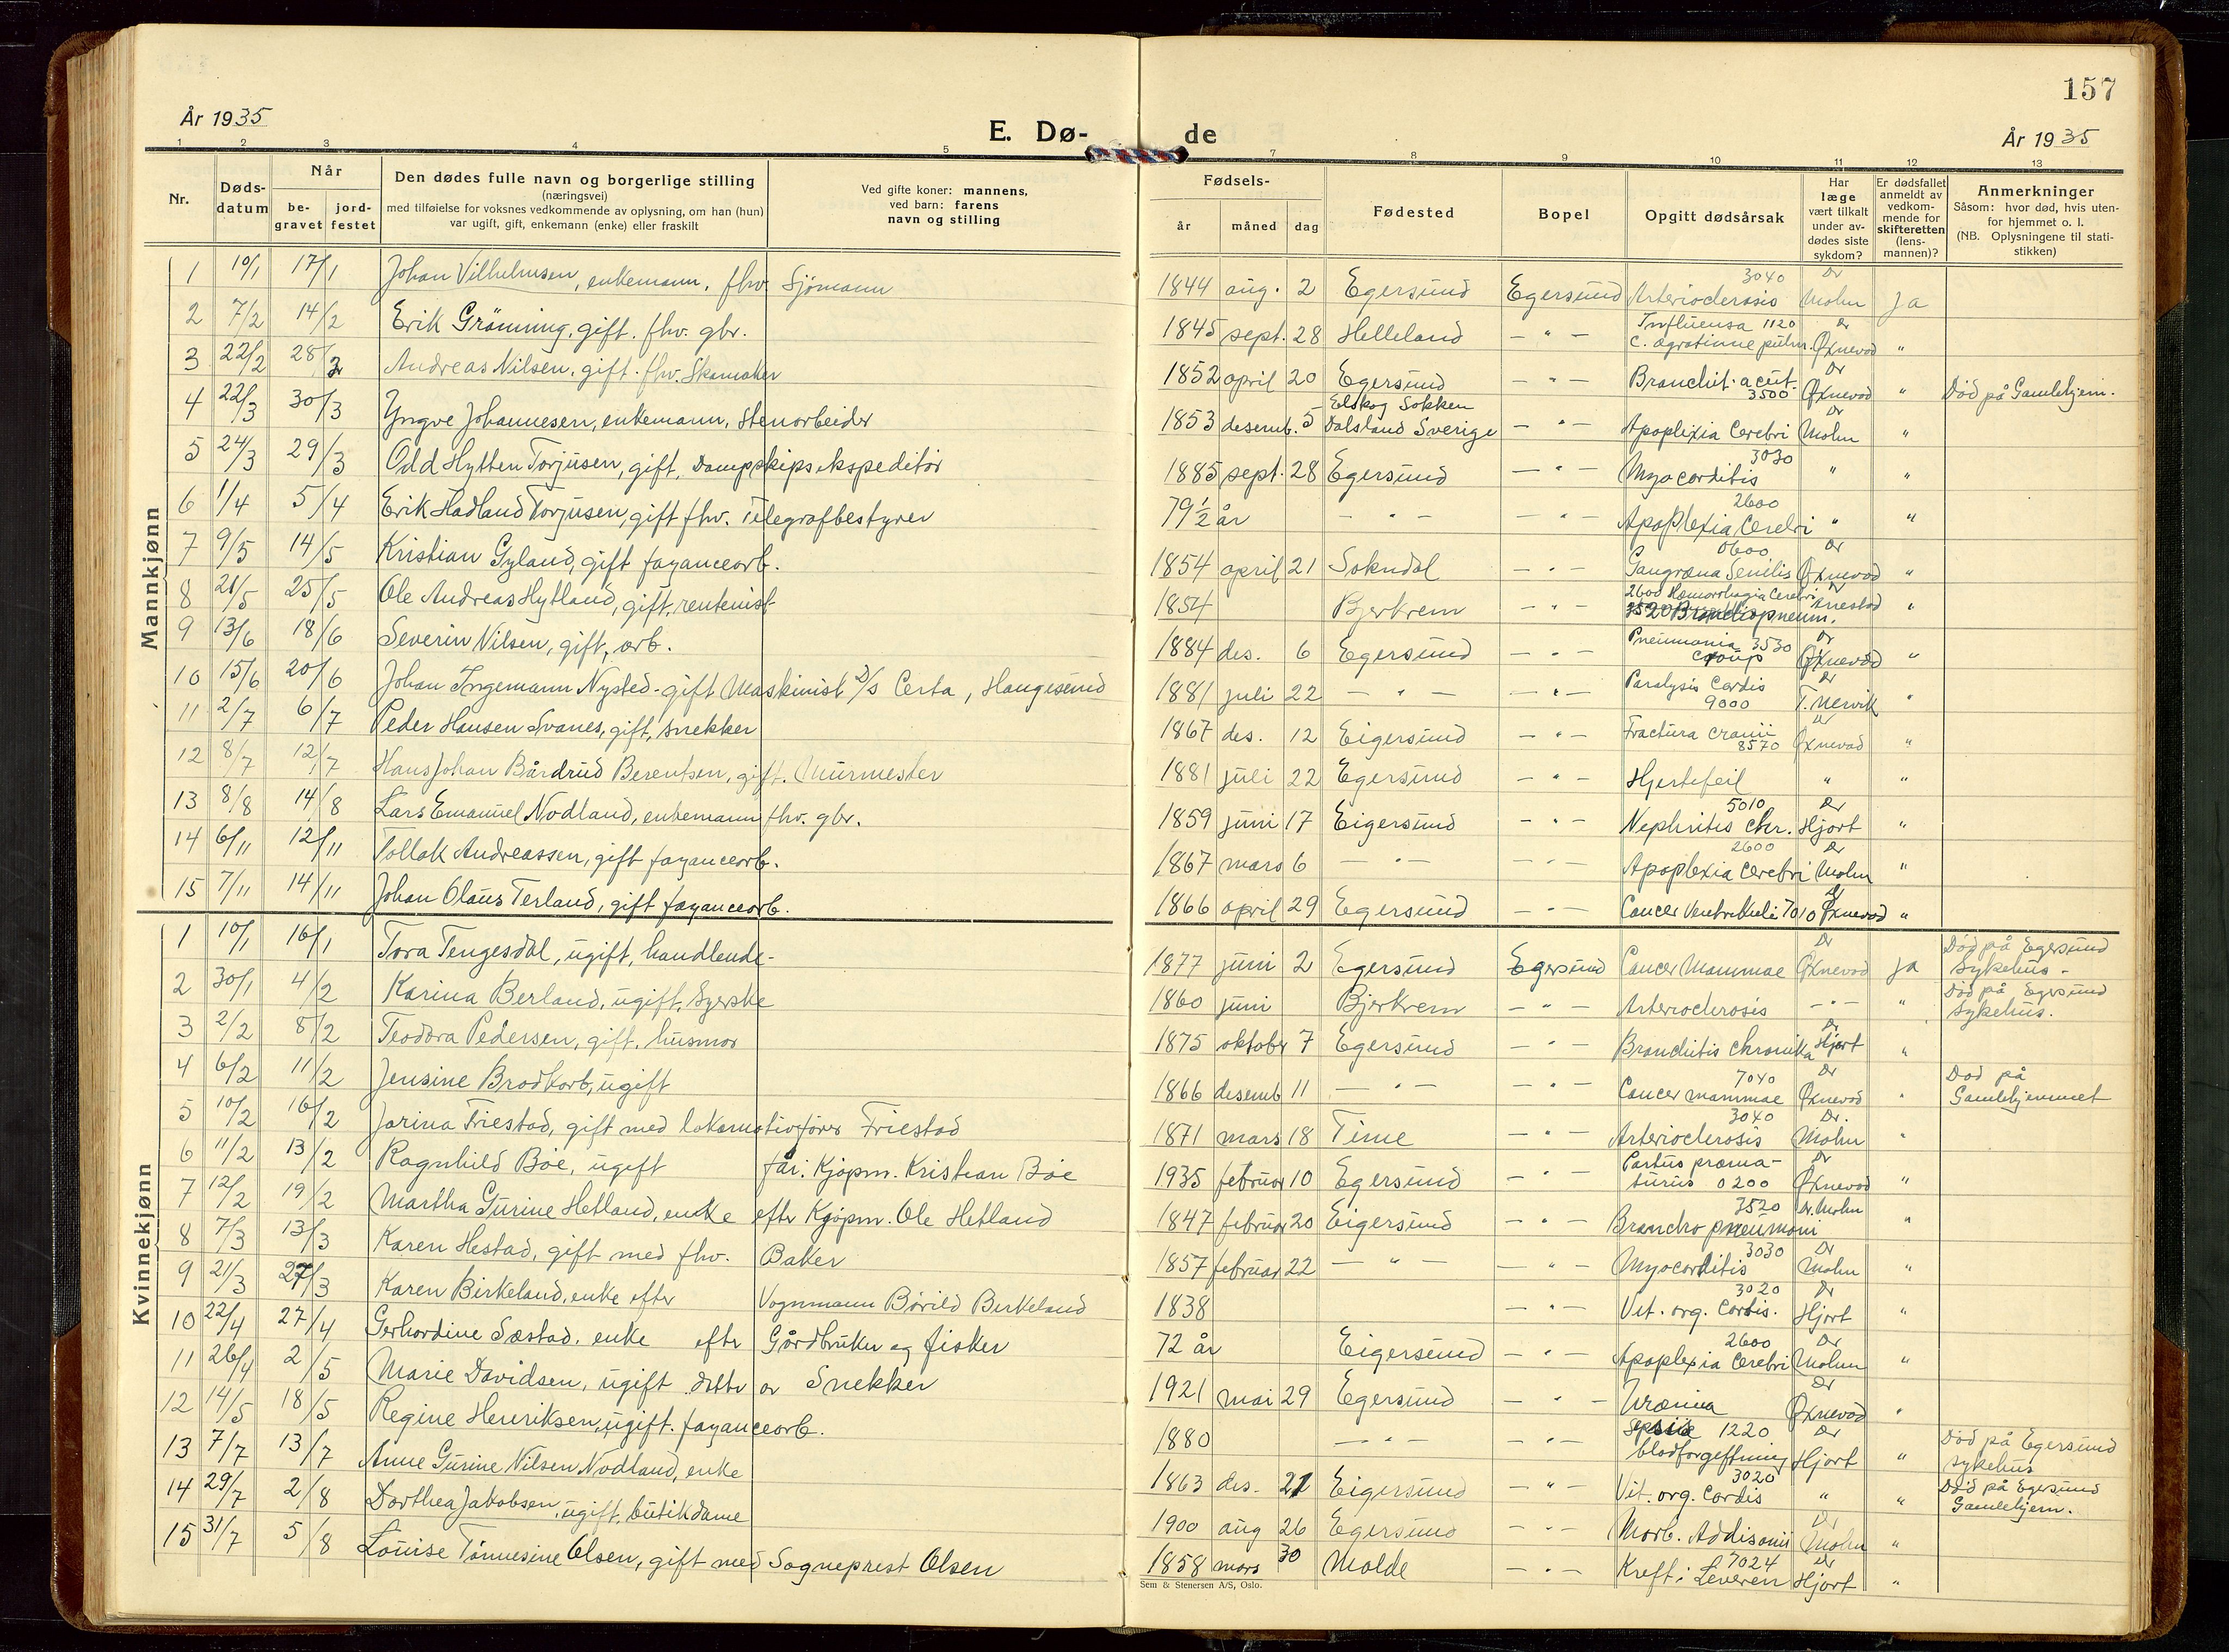 157
År 1935
E. Dø-de
År 1935
1 2 3 4 5 7 8 9 10 11 12 13
Nr.
Døds-
datum
Når
be-
gravet
jord-
festet
Den dødes fulle navn og borgerlige stilling
(næringsvei)
med tilføielse for voksnes vedkommende av oplysning, om han (hun)
var ugift, gift, enkemann (enke) eller fraskilt
Ved gifte koner: mannens,
ved barn: farens
navn og stilling
Fødsels-
år måned dag
Fødested
Bopel
Opgitt dødsårsak
Har
læge
vært tilkalt
under av-
dødes siste
sykdom?
Er dødsfallet
anmeldt av
vedkom-
mende for
skifteretten
(lens-
mannen)?
Anmerkninger
Såsom: hvor død, hvis uten-
for hjemmet o. l.
(NB. Oplysningene til stati-
stikken)
Mannkjønn
1 10/1 17/1 Johan Vilhelmsen, enkemann, fhv. Sjømann 1844 aug. 2 Egersund Egersund Arteriosclerosis 3040 Dr Mohn ja
2 7/2 14/2 Erik Grønning, gift. fhv. gbr. 1845 sept. 28 Helleland - " - Influensa 1120 Dr Øxnevad "
3 22/2 28/2 Andreas Nilsen, gift. fhv. Skomaker 1852 april 20 Egersund - " - Bronchit. acut. 3500 Dr Øxnevad " Død på Gamlehjem.
4 22/3 30/3 Yngve Johannesen, enkemann, Stenarbeider 1853 desemb. 5 Elskog Sokken Dalsland Sverige - " - Apoplexia Cerebri Dr Mohn "
5 24/3 29/3 Odd Hytten Torjusen, gift, Dampskipsekspeditør 1885 sept. 28 Egersund - " - Myocarditis 3030 " "
6 1/4 5/4 Erik Hadland Torjusen, gift fhv. Telegrafbestyrer 79 1/2 år - " - - " - Apoplexia Cerebri 2600 " "
7 9/5 14/5 Kristian Gyland, gift fayancearb. 1854 april 21 Sokndal - " - Gangræna Senilis 0600 Dr Øxnevad "
8 21/5 25/5 Ole Andreas Hytland, gift, rentenist 1854 Bjerkrem - " - 2600 Hæmorrhagia Cerebri 3520 Bronchopneum. "
9 13/6 18/6 Severin Nilsen, gift, arb. 1884 des. 6 Egersund - " - Pneumonia croup 3530 Dr Øxnevad "
10 15/6 20/6 Johan Ingemann Nysted - gift Maskinist D/S Certa, Haugesund 1881 juli 22 - " - - " - Paralysis Cordis 9000 Dr T. Nervik "
11 2/7 6/7 Peder Hansen Svanes, gift, snekker 1867 des. 12 Eigersund - " - Fractura Cranii 8570 Dr Øxnevad "
12 8/7 12/7 Hans Johan Bårdrud Berentsen, gift. Murmester 1881 juli 22 Egersund - " - Hjertefeil " "
13 8/8 14/8 Lars Emanuel Nodland, enkemann fhv. gbr. 1859 juni 17 Eigersund - " - Nephritis Chr. 5010 Dr Hjort "
14 6/11 12/11 Tollak Andreassen, gift fayancearb. 1867 mars 6 - " - - " - Apoplexia Cerebri 2600 Dr Mohn "
15 7/11 14/11 Johan Olaus Terland, gift fayancearb. 1866 april 29 Egersund - " - Cancer Ventrikuli 7010 Dr Øxnevad "
Kvinnekjønn
1 10/1 16/1 Tora Tengesdal, ugift, handlende - 1877 juni 2 Egersund Egersund Cancer Mammae Dr Øxnevad ja Død på Egersund Sykehus -
2 30/1 4/2 Karina Berland, ugift, Syerske 1860 juni Bjerkrem - " - Arteriosclerosis - " - " Død på Egersund Sykehus.
3 2/2 8/2 Teodora Pedersen, gift, husmor 1875 oktober 7 Egersund - " - Bronchitis Chronika Dr Hjort "
4 6/2 11/2 Jensine Brodkorb, ugift 1866 desemb 11 - " - - " - Cancer mammae 7040 Dr Øxnevad " Død på Gamlehjemmet
5 10/2 16/2 Jarina Friestad, gift med lokomotivfører Friestad 1871 mars 18 Time - " - Arteriosclerosis 3040 Dr. Mohn "
6 11/2 13/2 Ragnhild Bøe, ugift far: Kjøpm. Kristian Bøe 1935 februar 10 Egersund - " - Partus præma-turus 0200 Dr Øxnevad "
7 12/2 19/2 Martha Gurine Hetland, enke efter Kjøpm. Ole Hetland 1847 februar 20 Eigersund - " - Broncho pneumoni 3520 Dr. Mohn "
8 7/3 13/3 Karen Hestad, gift med fhv. Baker 1857 februar 22 - " - - " - Myocarditis 3030 Dr Mohn "
9 21/3 27/3 Karen Birkeland, enke efter Vognmann Bårild Birkeland 1838 - " - Vit. org. Cordis. 3020 Dr Hjort "
10 22/4 27/4 Gerhardine Sæstad, enke efter Gårdbruker og fisker 72 år Eigersund - " - Apoplexia Cerebri 2600 Dr Mohn "
11 26/4 2/5 Marie Davidsen, ugift datter av Snekker 1921 mai 29 Egersund - " - Uræmia Dr Øxnevad "
12 14/5 18/5 Regine Henriksen, ugift. fayancearb. 1880 - " - - " - Sepsis 1220 blodforgiftning Dr Hjort " Død på Egersund sykehus
13 7/7 13/7 Anne Gurine Nilsen Nodland, enke 1863 des. 21 Eigersund - " - Vit. org. Cordis 3020 " " Død på Egersund Gamlehjem.
14 29/7 2/8 Dorthea Jakobsen, ugift, butikdame 1900 aug 26 Egersund - " - Morb. Addisonii Dr Mohn "
15 31/7 5/8 Louise Tønnesine Olsen, gift med Sogneprest Olsen 1858 mars 30 Molde - " - Kreft i Leveren 7024 Dr Hjort "
Sem & Stenersen A/S, Oslo.